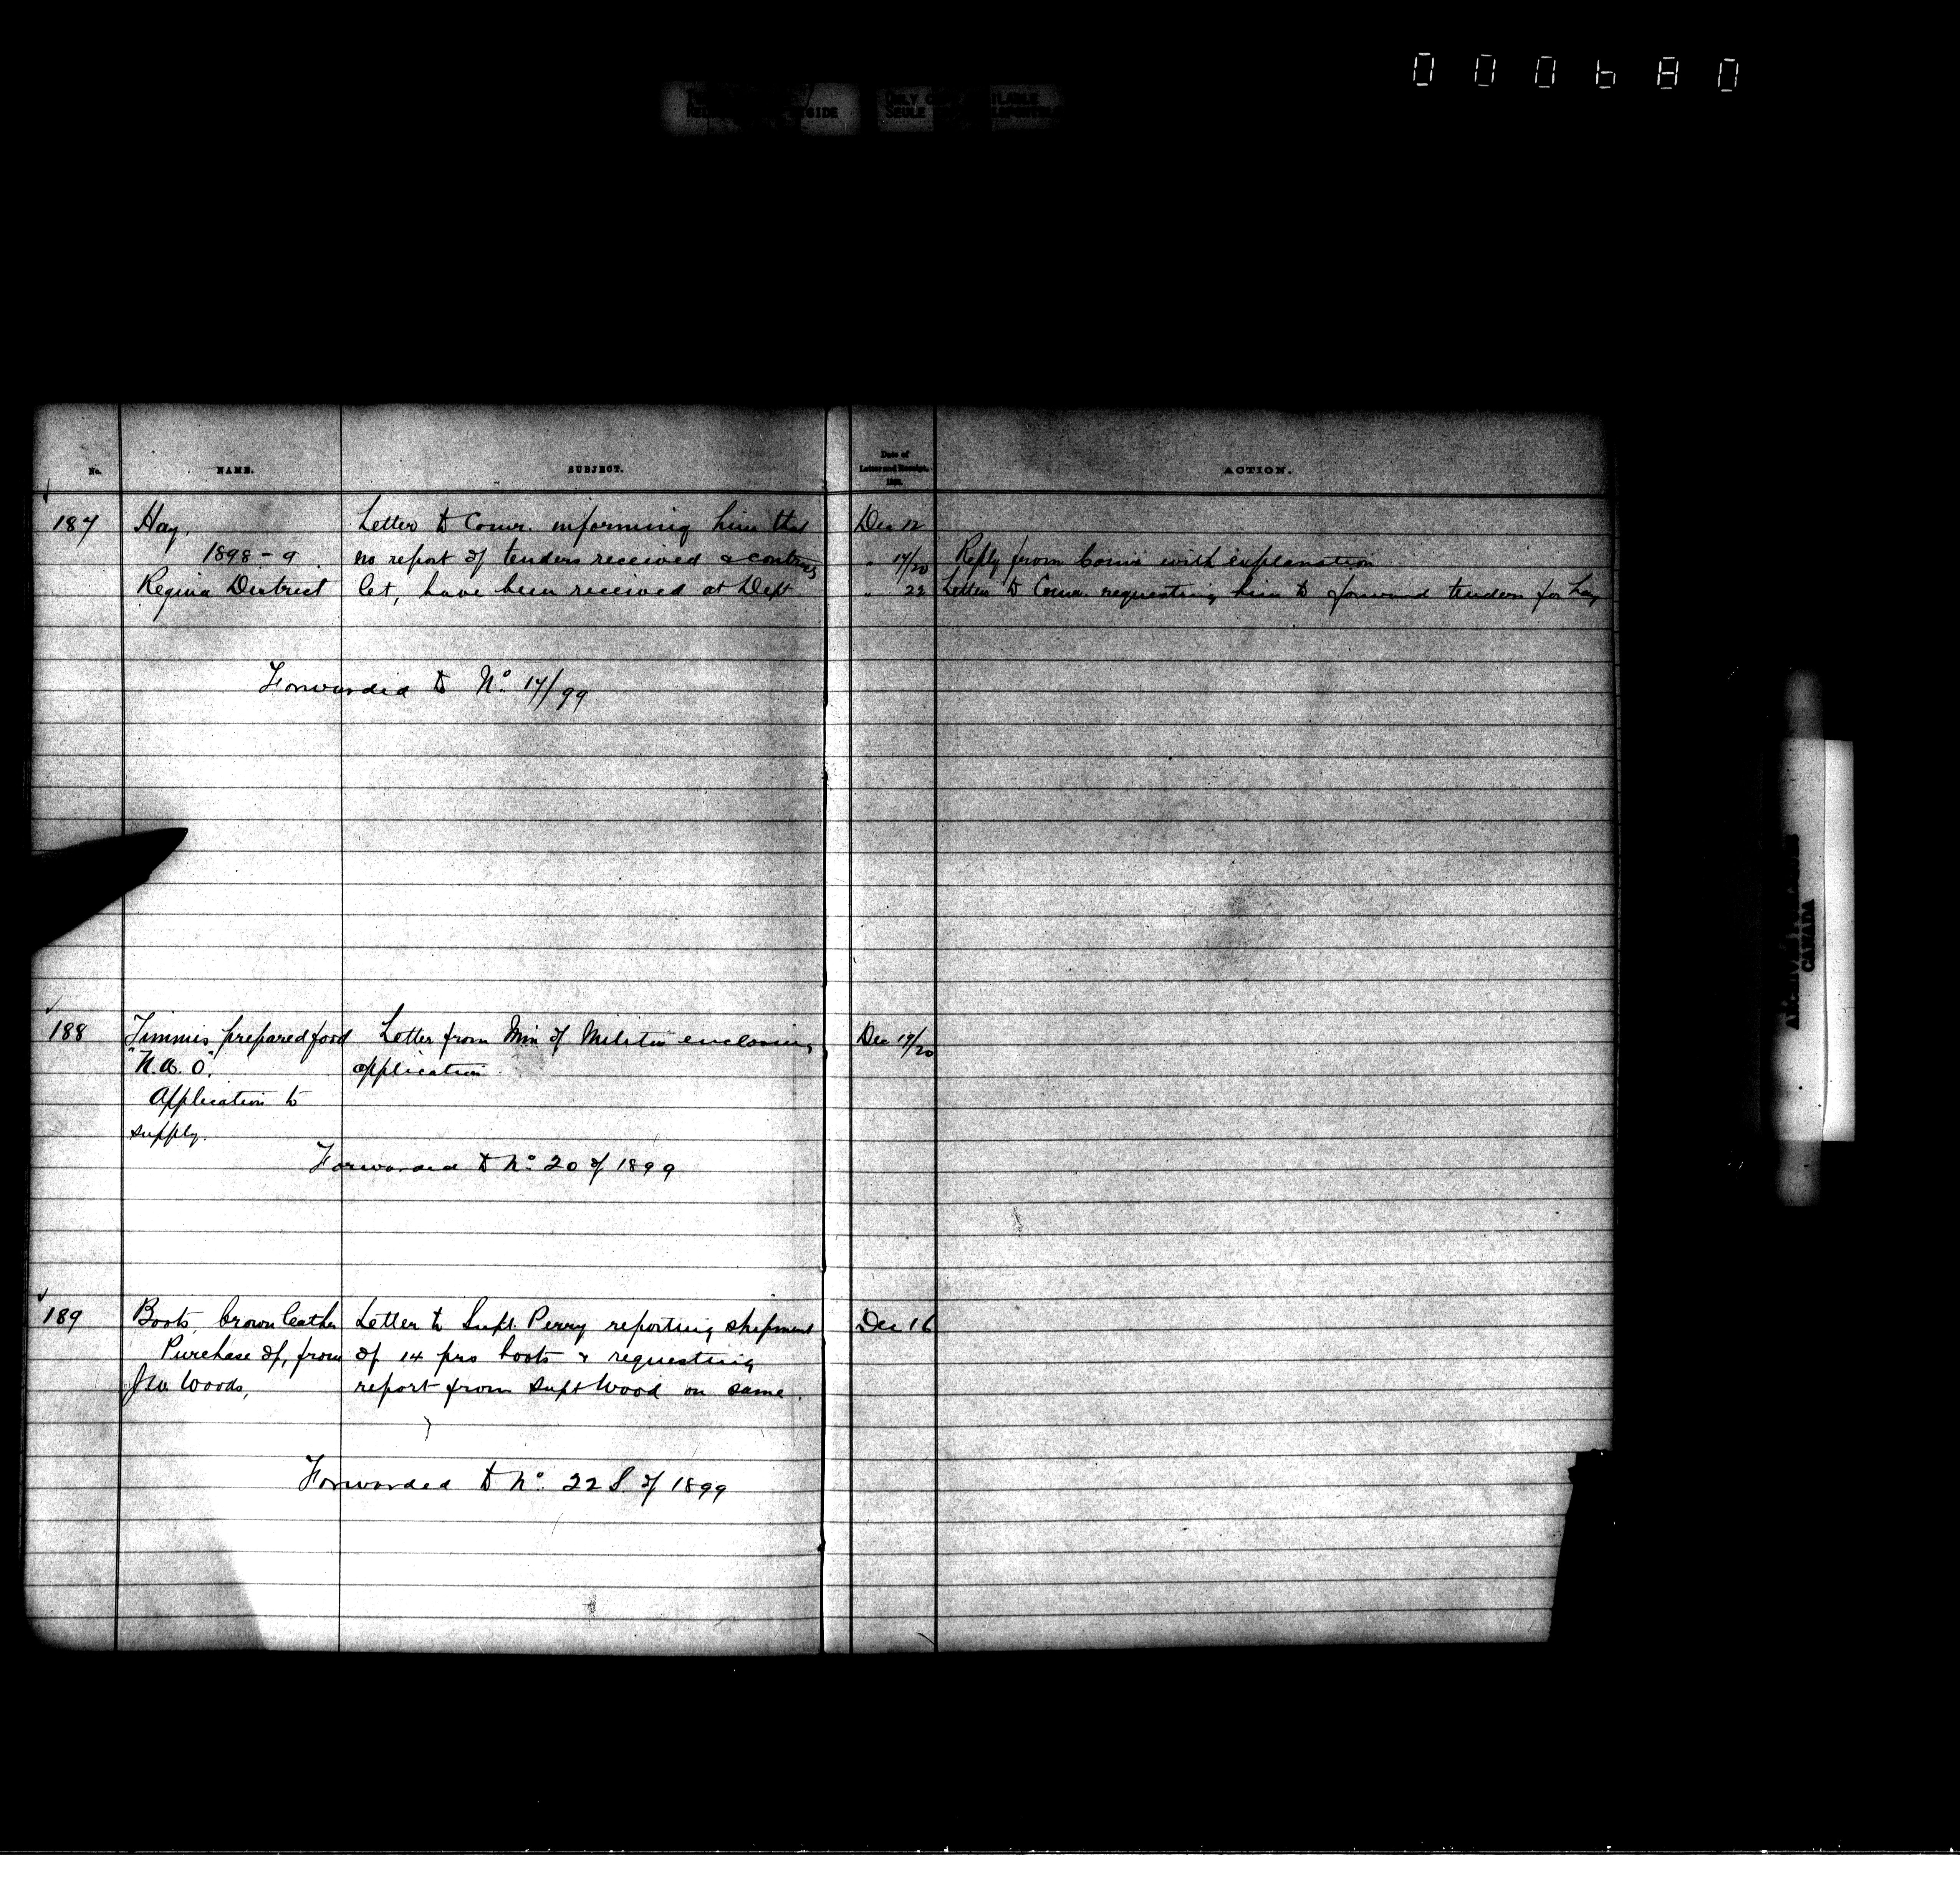 000680
No. NAME. SUBJECT. Date of Letter and Receipt, ACTION.
187 Hay, Letter to Comr. informing him that Dec 12
1898-9. no report of tenders received & contracts " 17/20 Reply from Comr with explanation
Regina District let, have been received at Dept " 22 Letter to Comr. requesting him to forward tenders for hay
Forwarded to No. 17/99
188 Timmis prepared food Letter from Min of Militia enclosing Dec 19/20
application
Application to
supply.
Forwarded to No. 20 of 1899
189 Boots, brown leather Letter to Supt. Perry reporting shipment Dec 16
Purchase of, from of 14 prs boots & requesting
Woods, report from Supt Wood on same.
Forwarded to No. 22 S of 1899